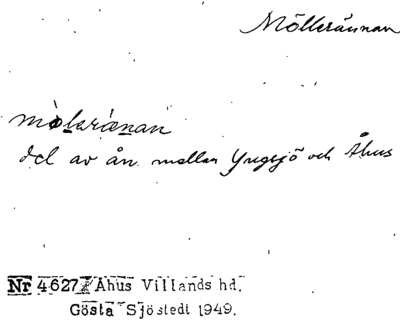 Möllerännan
mølerænan
del av ån mellan Yngsjö och Åhus
Nr 4627 Åhus Villands hd.
Gösta Sjöstedt 1949.